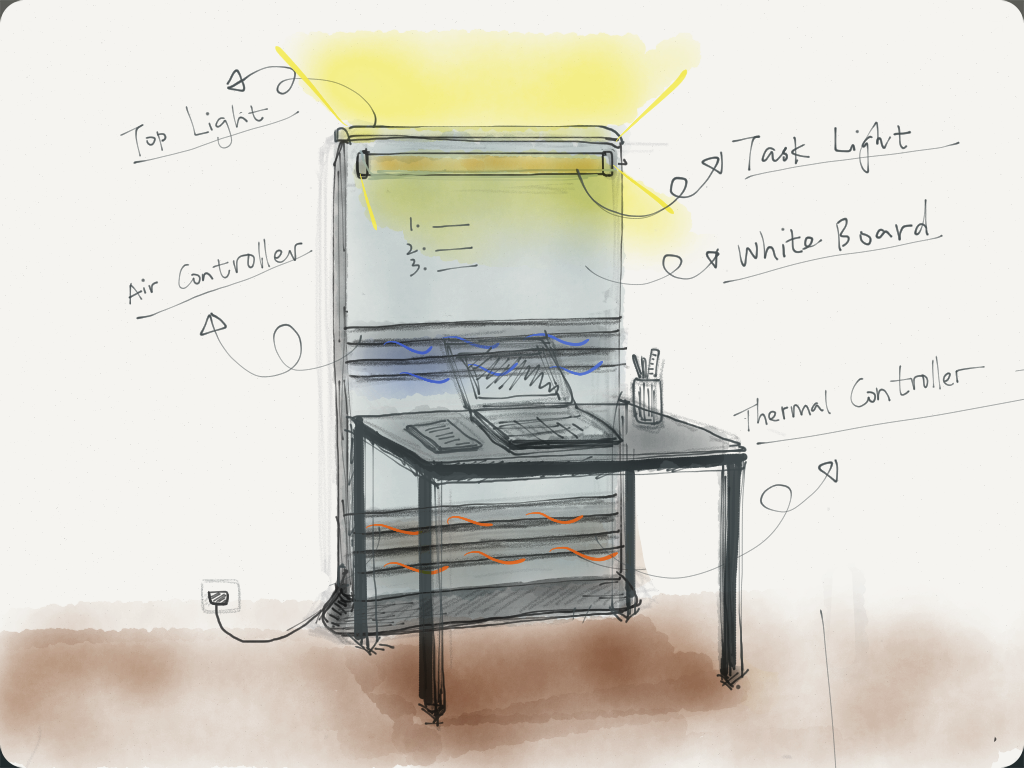 Top Light
Task Light
1.
2.
3.
White Board
Air Controller
Thermal Controller